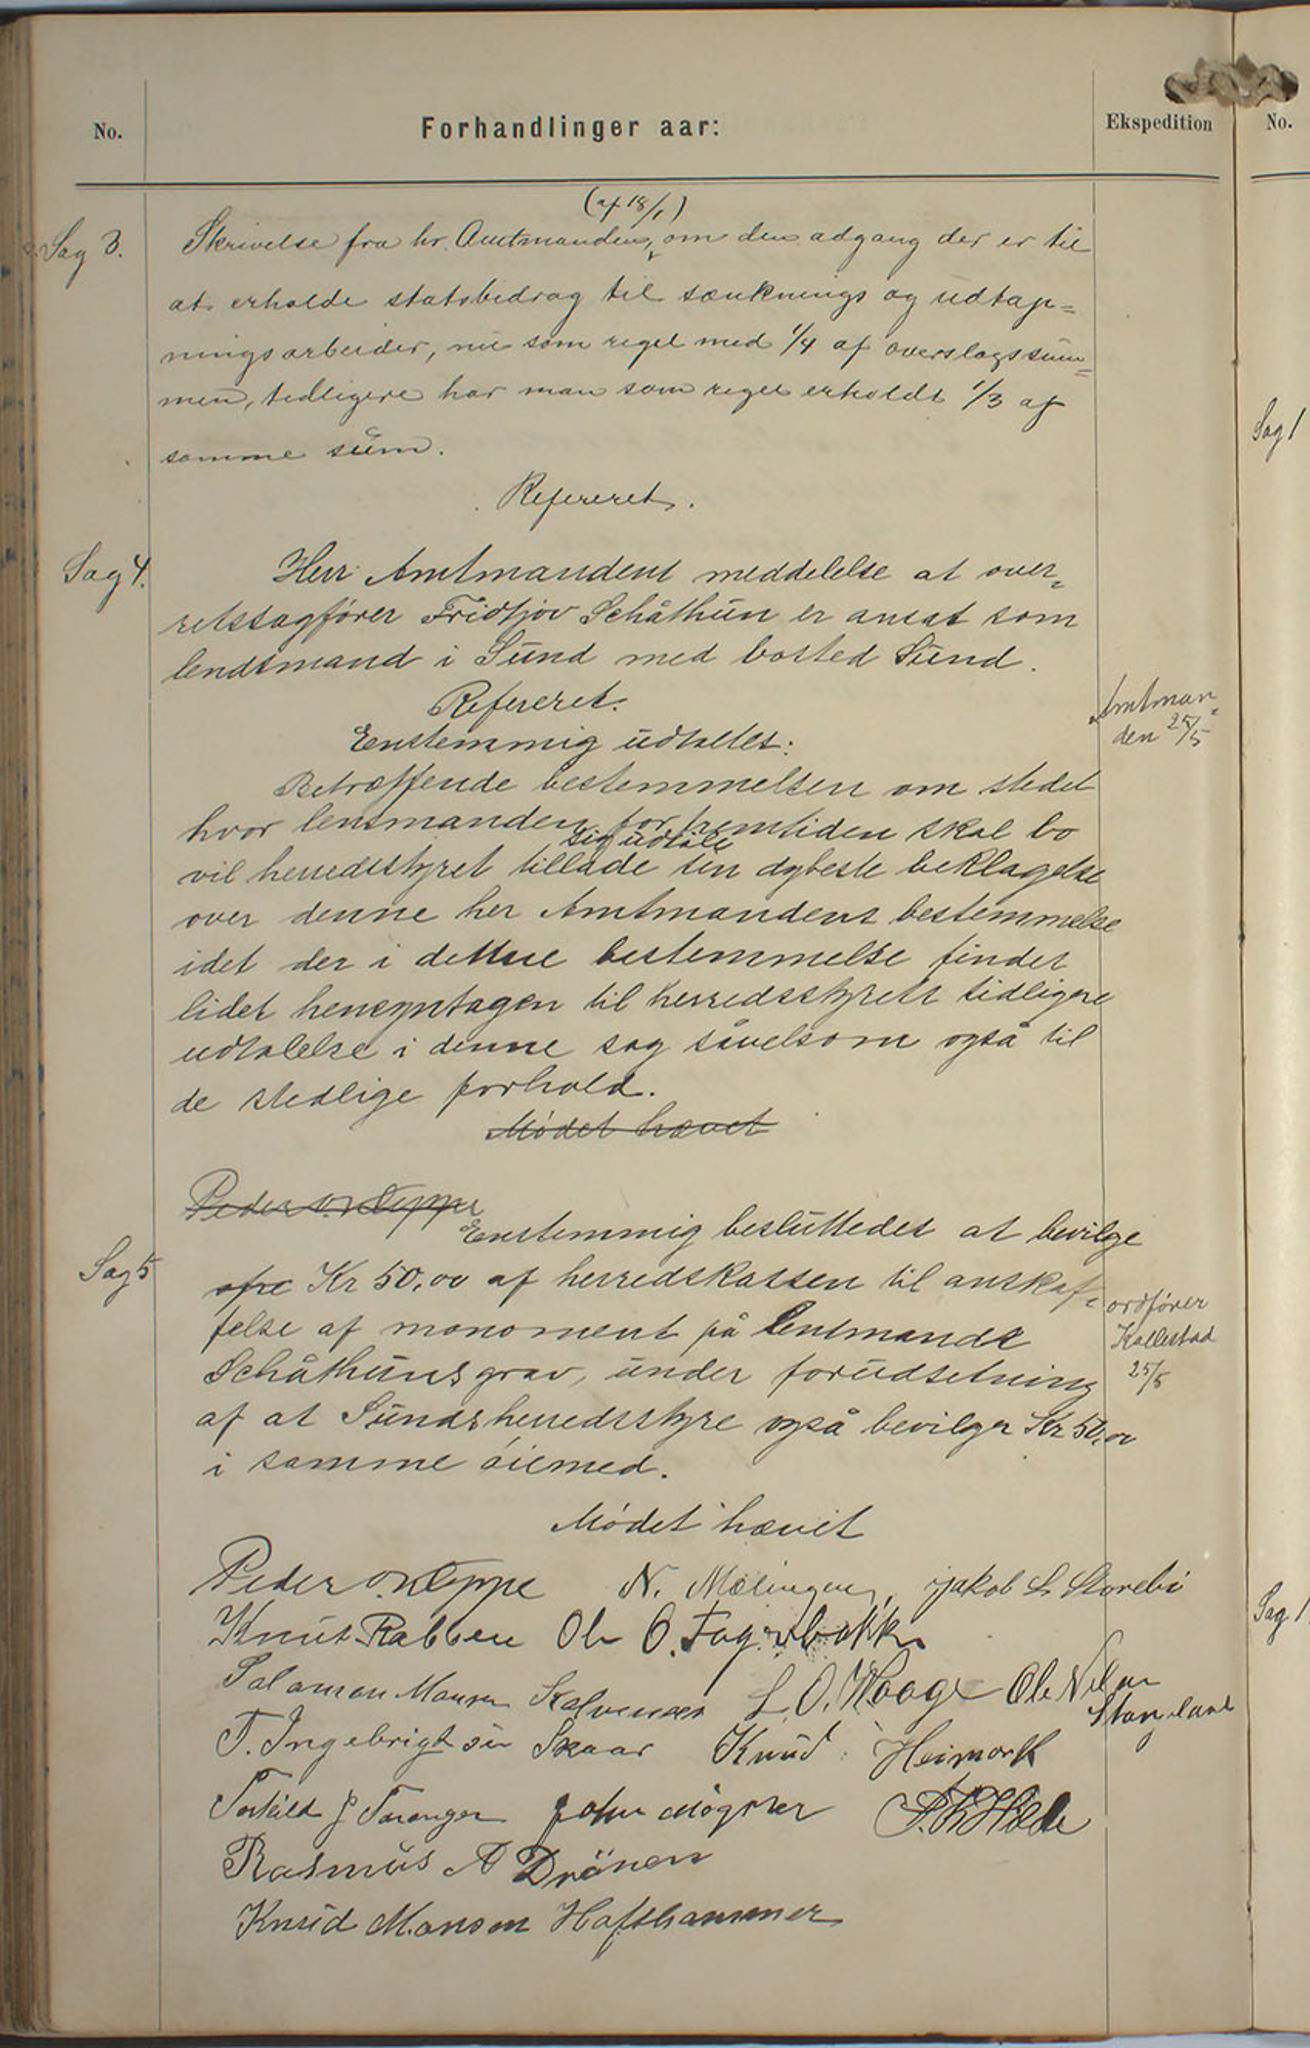 No.
Forhandlinger aar:
Ekspedition
No.
(af 18/1)
Sag 3.
Skrivelse fra hr. Amtmanden, om den adgang der er til
at erholde statsbidrag til sænknings og udtap=
ningsarbeider, nu som regel med 1/4 af overslagssum=
men, tidligere har man som regel erholdt 1/3 af
samme sum.
Refereret.
Sag 4.
Herr Amtmandens meddelelse at over=
retssagfører Fridtjov Schåthun er ansat som
lendsmand i Sund med bosted Sund.
Refereret.
Enstemmig udtaltes:
Amtman=
den 25/5
Betræffende bestemmelsen om stedet
hvor lensmanden for fremtiden skal bo
sig udtale
vil herredsstyret tillade sin dybeste beklagelse
over denne her Amtmandens bestemmelse
idet der i dettne bestemmelse findes
lidet hensyntagen til herredsstyrets tidligere
udtalelse i denne sag såvelsom også til
de stedlige forhold.
Mødet hævet
Peder O. Kleppe
Enstemmig besluttedes at bevilge
Sag 5
Kr 50,00 af herredskassen til anskaf=
felse af monoment på lensmands
Schåthuns grav, under forudsetning
af at Sunds herredsstyre også bevilger Kr 50,00
i samme öiemed.
ordfører
Kallestad
25/5
Mødet hævet
Peder O. Kleppe N. Mælingen, Jakob L Storebö
Knut Rabben Ole O. Fagerbakke
Salamon Monsen Kalvenes L. O. Haage Ole Nilsen
Stangeland
T. Ingebrigtsen Skaar Knud Heimark
Torkild J Toranger John Møgster
Rasmus A Drönen
Knud Monsen Hafthammer
Sag 1
Sag 1